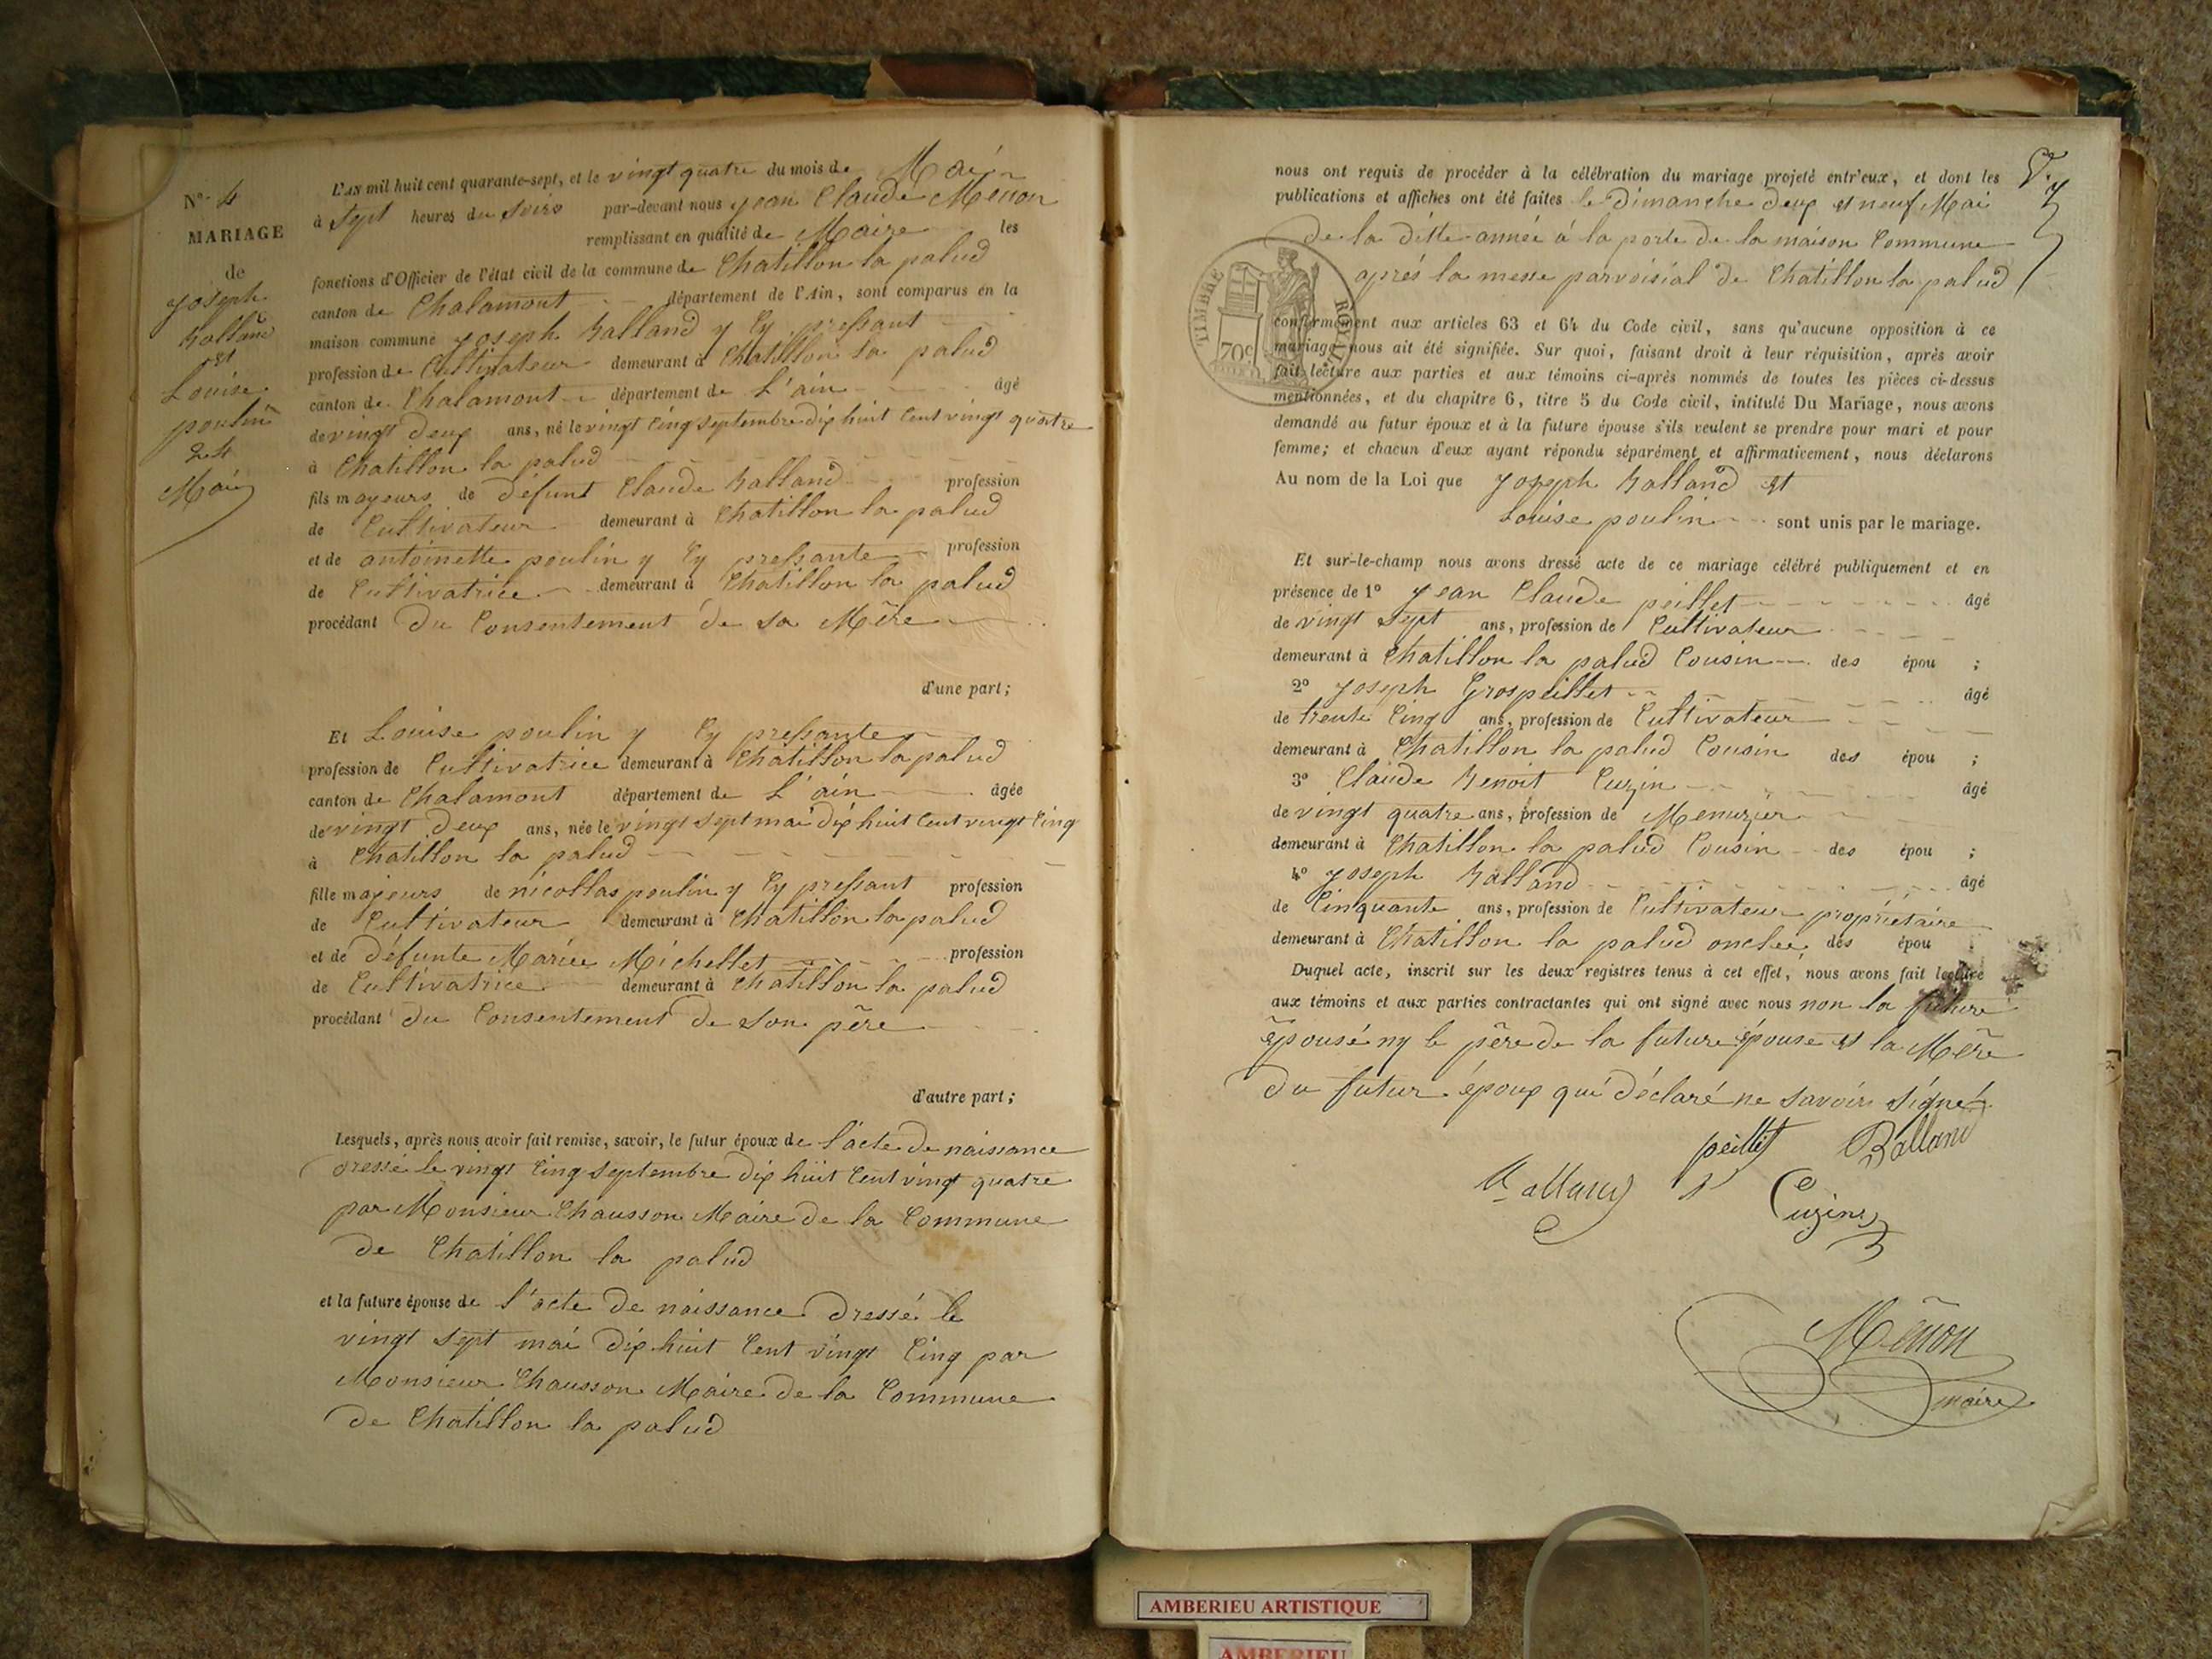 N° 4
MARIAGE
de
Joseph
Balland
et
Louise
poulin
24
Mai
L'AN mil huit cent quarante-sept, et le vingt quatre du mois de Mai
à Sept heures du Soirs par-devant nous Jean Claude Ménon
remplissant en qualité de Maire les
fonctions d'Officier de l'état civil de la commune de Chatillon la palud
canton de Chalamont département de l'Ain, sont comparus en la
maison commune Joseph Balland y Cy pressant
profession de Cultivateur demeurant à Chatillon la palud
canton de Chalamont département de L'ain âgé
de vingt deux ans, né le vingt Cinq septembre dix huit Cent vingt quatre
à Chatillon la palud
fils mayeurs de défunt Claude Balland profession
de Cultivateur demeurant à Chatillon la palud
et de antoinette poulin y Cy pressante profession
de Cultivatrice demeurant à Chatillon la palud
procédant du Consentement de sa Mère
d'une part;
Et Louise poulin y Cy pressante
profession de Cultivatrice demeurant à Chatillon la palud
canton de Chalamont département de L'ain âgée
de vingt deux ans, née le vingt sept mai dix huit Cent vingt Cinq
à Chatillon la palud
fille majeurs de nicollas poulin y Cy pressant profession
de Cultivateur demeurant à Chatillon la palud
et de défunte Mariee Michellet profession
de Cultivatrice demeurant à Chatillon la palud
procédant du Consentement de son père
d'autre part;
Lesquels, après nous avoir fait remise, savoir, le futur époux de l'acte de naissance
dressé le vingt Cinq septembre dix huit Cent vingt quatre
par Monsieur Chausson Maire de la Commune
de Chatillon la palud
et la future épouse de l'acte de naissance dressé le
vingt sept mai dix huit Cent vingt Cinq par
Monsieur Chausson Maire de la Commune
de Chatillon la palud
nous ont requis de procéder à la célébration du mariage projeté entr'eux, et dont les
publications et affiches ont été faites le Dimanche deux et neuf Mai
de la ditte année à la porte de la maison Commune
aprés la messe parvoisial de Chatillon la palud
TIMBRE ROYAL
70c
conformément aux articles 63 et 64 du Code civil, sans qu'aucune opposition à ce
mariage nous ait été signifiée. Sur quoi, faisant droit à leur réquisition, après avoir
fait lecture aux parties et aux témoins ci-après nommés de toutes les pièces ci-dessus
mentionnées, et du chapitre 6, titre 5 du Code civil, intitulé Du Mariage, nous avons
demandé au futur époux et à la future épouse s'ils veulent se prendre pour mari et pour
femme; et chacun d'eux ayant répondu séparément et affirmativement, nous déclarons
Au nom de la Loi que Joseph Balland et
Louise poulin sont unis par le mariage.
Et sur-le-champ nous avons dressé acte de ce mariage célébré publiquement et en
présence de 1° Jean Claude peillet âgé
de vingt sept ans, profession de Cultivateur
demeurant à Chatillon la palud Cousin des épou ;
2° Joseph Grospeillet âgé
de trente Cinq ans, profession de Cultivateur
demeurant à Chatillon la palud Cousin des épou ;
3° Claude Benoit Cuzin âgé
de vingt quatre ans, profession de Menuzier
demeurant à Chatillon la palud Cousin des épou ;
4° Joseph Balland âgé
de Cinquante ans, profession de Cultivateur propriétaire
demeurant à Chatillon la palud onclee des épou
Duquel acte, inscrit sur les deux registres tenus à cet effet, nous avons fait lecture
aux témoins et aux parties contractantes qui ont signé avec nous non la future
épousé ny le père de la future épouse et la Mère
du futur époux qui déclaré ne savoir signé
peillet Balland
Balland Cuzin
Ménon
maire
AMBERIEU ARTISTIQUE
AMBERIEU